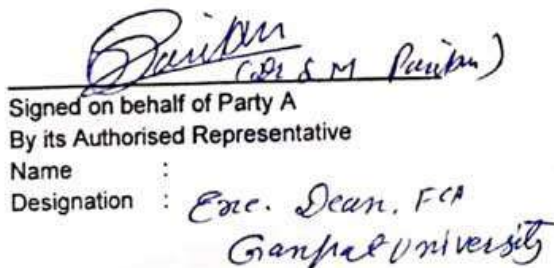 (Dr S M
Signed on behalf of Party A
By its Authorised Representative
Name :
Designation : Exe. Dean, FCA
Ganpat University